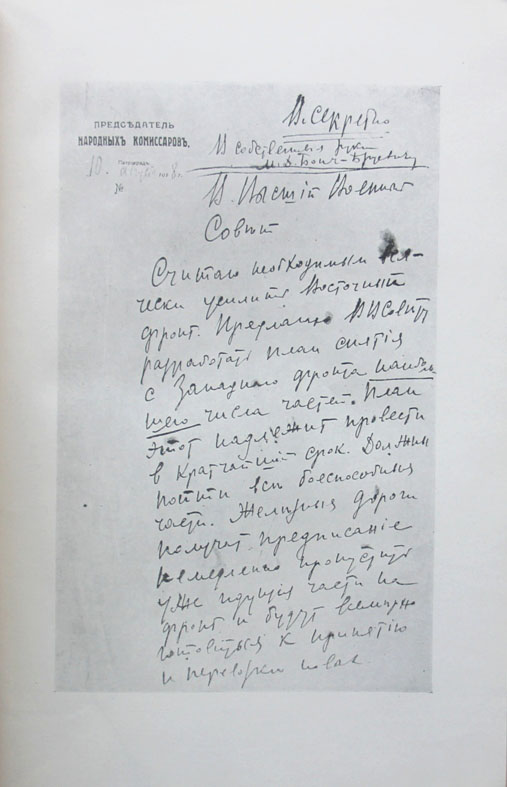 ПРЕДСѢДАТЕЛЬ
НАРОДНЫХЪ КОМИССАРОВЪ.
Петроградъ
10. августа 1918 г.
№
В. Секретно
В собственныя руки
М. Д. Бонч-Бруевичу
В. Высшій Военный
Совѣт
Считаю необходимым вся-
чески усилить Восточный
фронт. Предлагаю В В Совѣту
разработать план снятія
с Западнаго фронта наиболь
шего числа частей. План
этот надлежит провести
в кратчайшій срок. Должны
пойти всѣ боеспособныя
части. Желѣзныя дороги
получат предписаніе
немедленно пропустить
уже идущія части на
фронт и будут всемѣрно
готовиться к принятію
и перевозки новых.